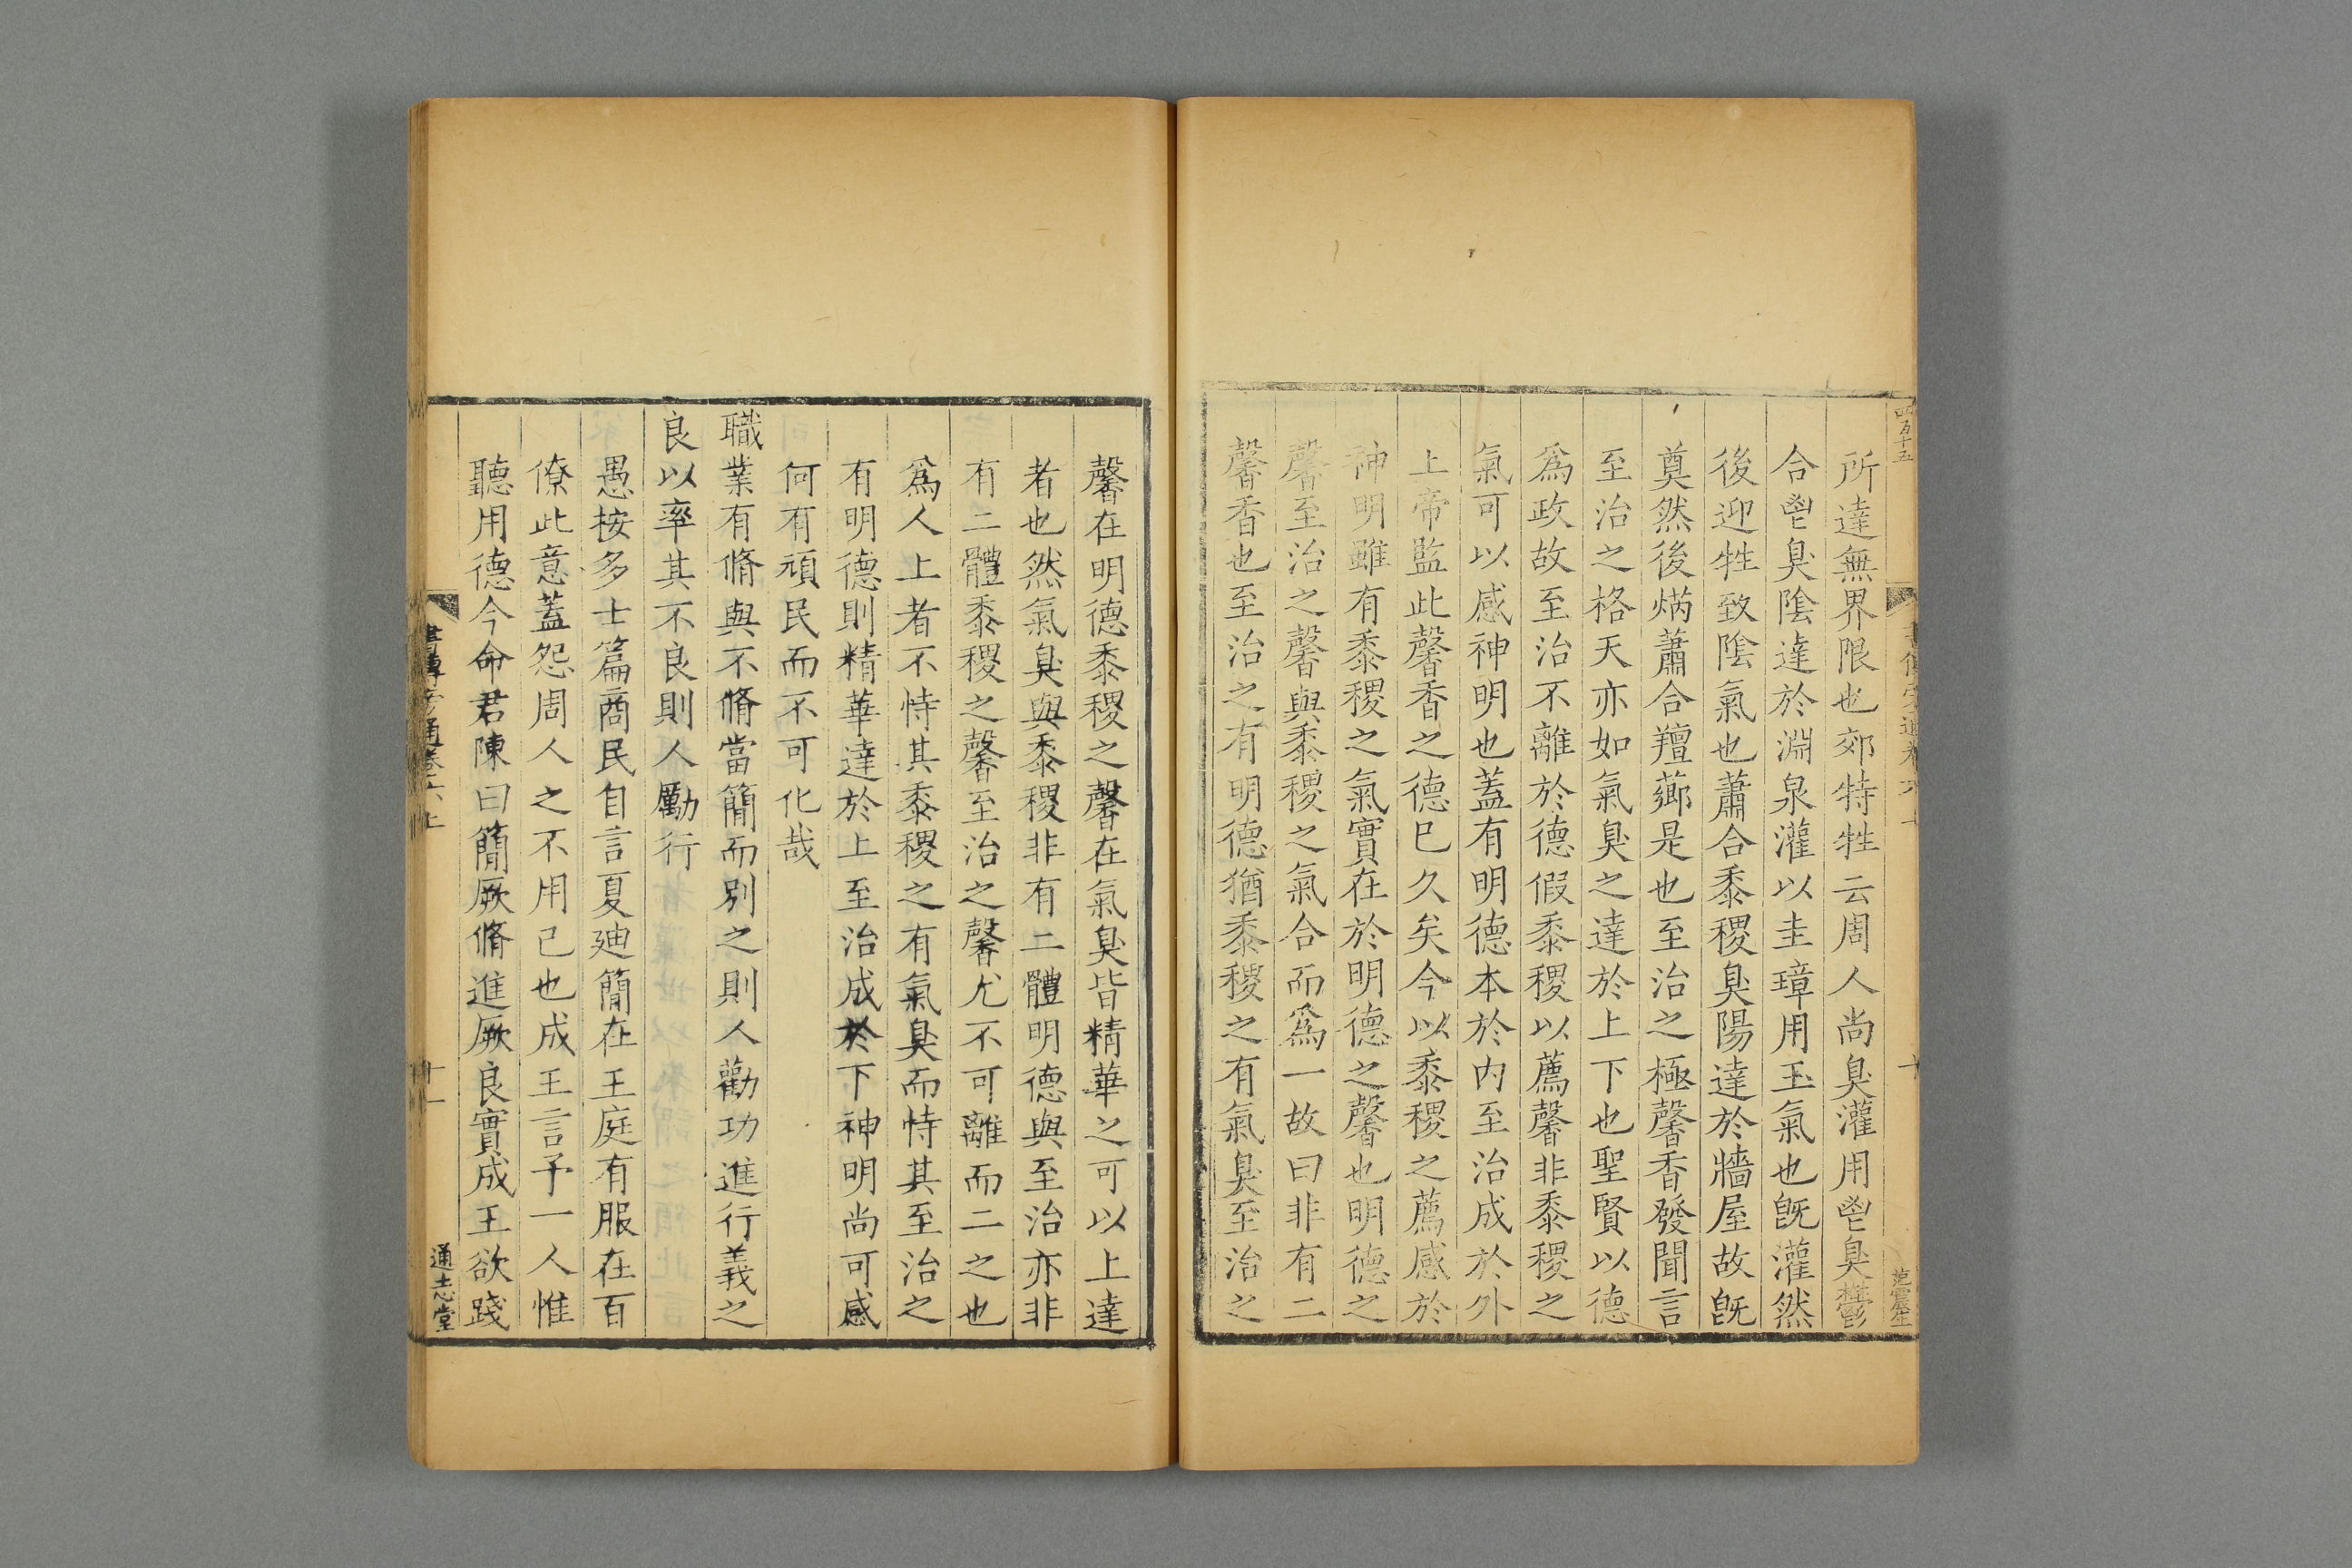 四百十五
十
范震生
所達無界限也郊特牲云周人尚臭灌用鬯臭鬱
合鬯臭隂達於淵泉灌以圭璋用玉氣也旣灌然
後迎牲致隂氣也蕭合黍稷臭陽達於牆屋故旣
奠然後焫蕭合羶薌是也至治之極馨香發聞言
至治之格天亦如氣臭之達於上下也聖賢以德
爲政故至治不離於德假黍稷以薦馨非黍稷之
氣可以感神明也蓋有明德本於内至治成於外
上帝監此馨香之德巳久矣今以黍稷之薦感於
神明雖有黍稷之氣實在於明德之馨也明德之
馨至治之馨與黍稷之氣合而爲一故曰非有二
馨香也至治之有明德猶黍稷之有氣臭至治之
馨在明德黍稷之馨在氣臭皆精華之可以上達
者也然氣臭與黍稷非有二體明德與至治亦非
有二體黍稷之馨至治之馨尤不可離而二之也
爲人上者不恃其黍稷之有氣臭而恃其至治之
有明德則精華達於上至治成於下神明尚可感
何有頑民而不可化哉
職業有脩與不脩當簡而别之則人勸功進行義之
良以率其不良則人勵行
愚按多士篇商民自言夏廸簡在王庭有服在百
僚此意蓋怨周人之不用己也成王言予一人惟
聽用德今命君陳曰簡厥脩進厥良實成王欲踐
書傳旁通卷六上
十一
通志堂